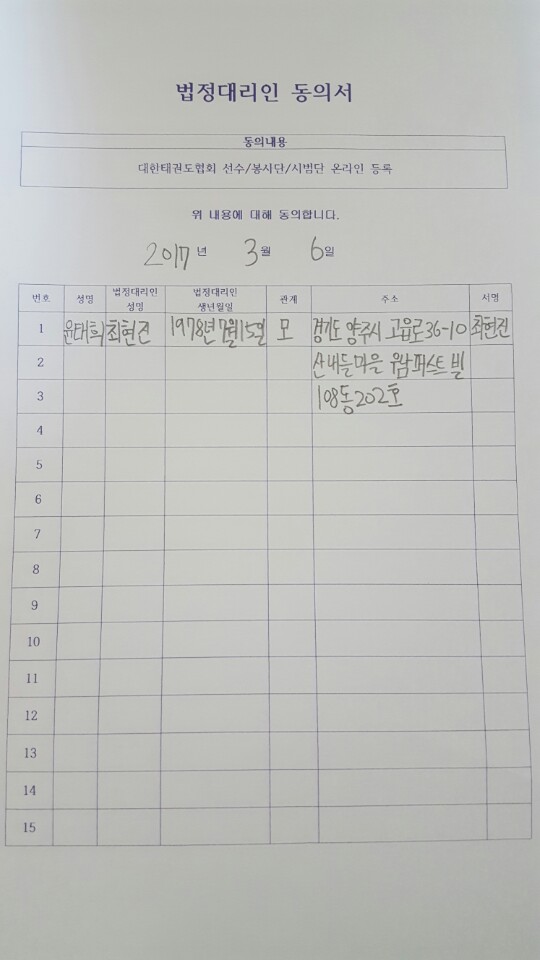 법정대리인 동의서
동의내용
대한태권도협회 선수/봉사단/시범단 온라인 등록
위 내용에 대해 동의합니다.
2017 년 3 월 6 일
번호 성명 법정대리인 성명 법정대리인 생년월일 관계 주소 서명
1 윤태희 최현진 1978년 7월 15일 모 경기도 양주시 고읍로36-10 최현진
2 산내들마을 우남퍼스트빌
3 108동 202호
4
5
6
7
8
9
10
11
12
13
14
15